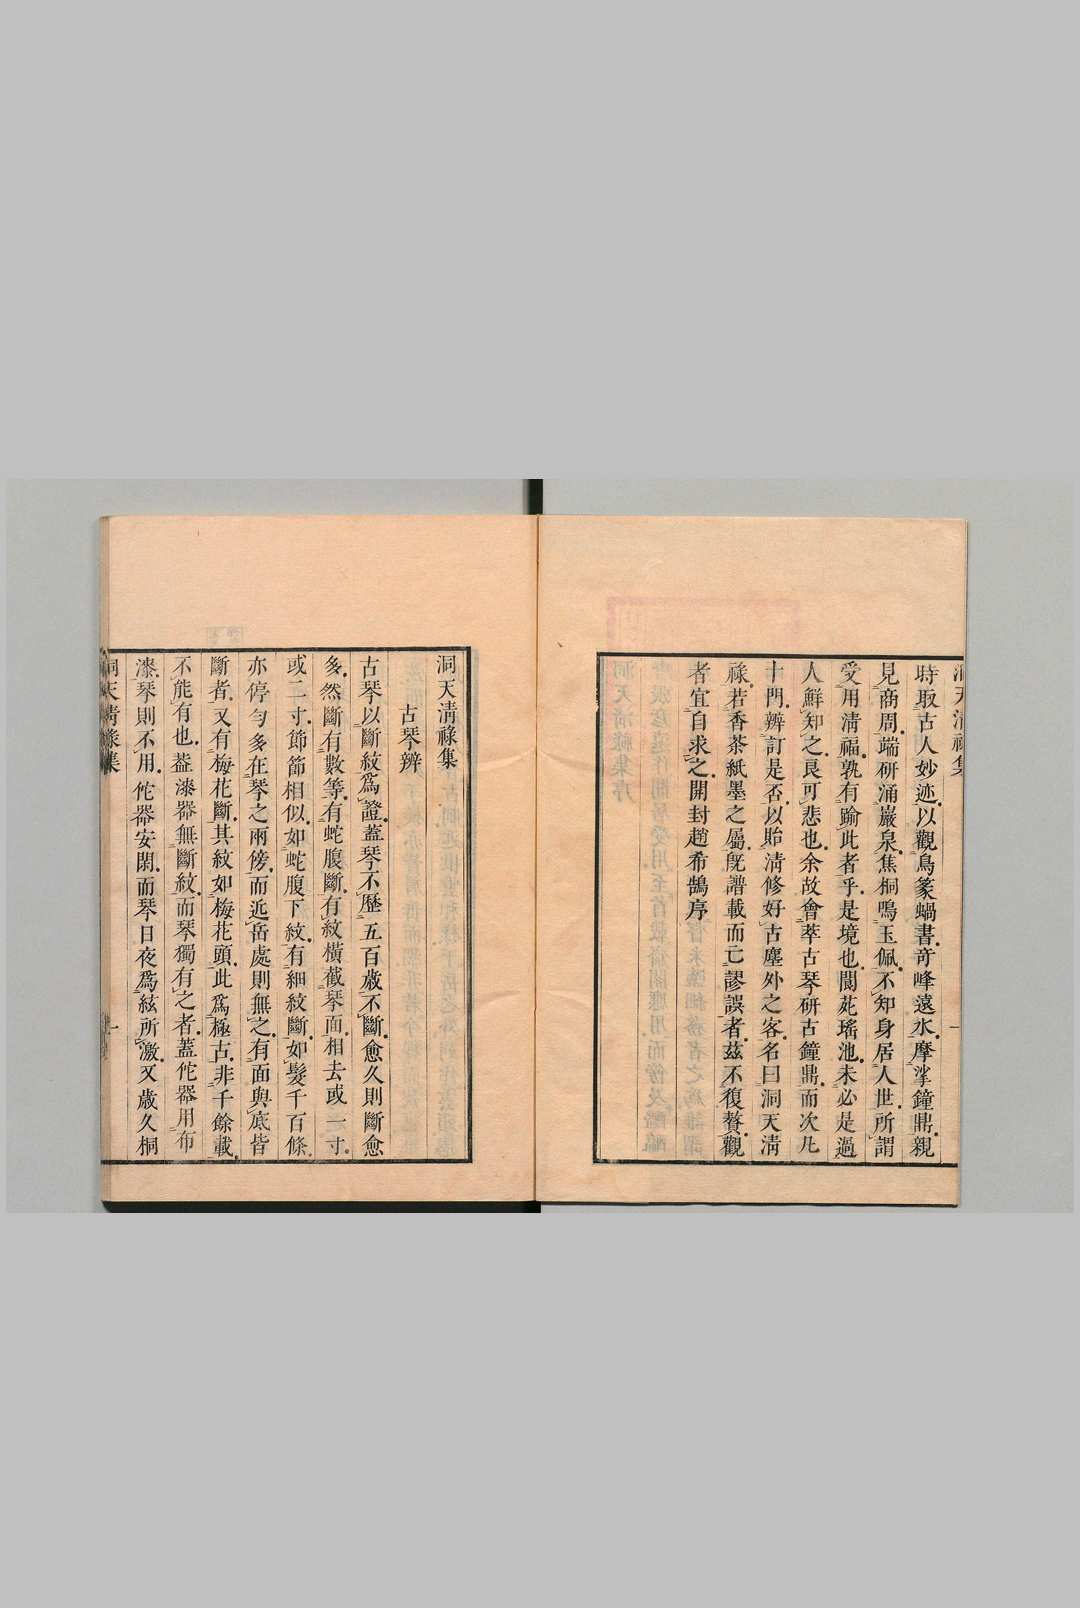 時取古人妙迹以觀鳥篆蝸書竒峰遠水摩挲鐘鼎親
見商周端研涌巖泉焦桐鳴玉佩不知身居人世所謂
受用清福孰有踰此者乎是境也閬苑瑤池未必是過
人鮮知之良可悲也余故會萃古琴研古鐘鼎而次凡
十門辨訂是否以貽清修好古塵外之客名曰洞天清
祿若香茶紙墨之屬旣譜載而亡謬誤者兹不復贅觀
者宜自求之開封趙希鵠序
洞天清祿集
古琴辨
古琴以斷紋爲證蓋琴不歷五百歲不斷愈久則斷愈
多然斷有數等有蛇腹斷有紋橫截琴面相去或一寸
或二寸節節相似如蛇腹下紋有細紋斷如髮千百條
亦停勻多在琴之兩傍而近岳處則無之有面與底皆
斷者又有梅花斷其紋如梅花頭此爲極古非千餘載
不能有也葢漆器無斷紋而琴獨有之者蓋佗器用布
漆琴則不用佗器安閑而琴日夜爲絃所激又歲久桐
洞天清祿集 一